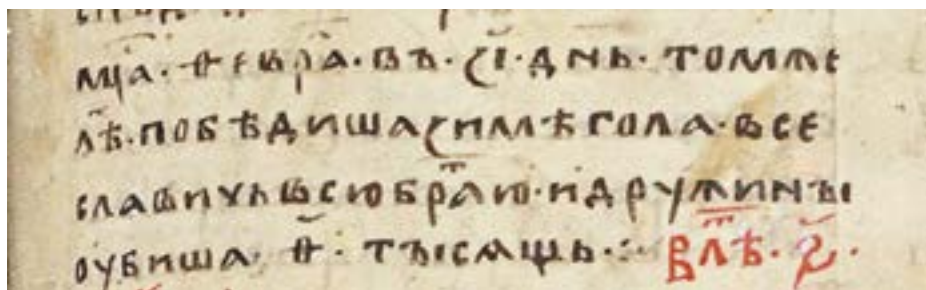 мц҃а · феврⷶа · въ · ѕ҃і · днь · томже
лѣ҃ · побѣдишаѕимѣгола · все
славичьвсюбраⷮю · идружинꙑ
оубиша · ѳ҃ · тꙑсѧщь ⁘ В лѣⷮ · ѕ҃ ·